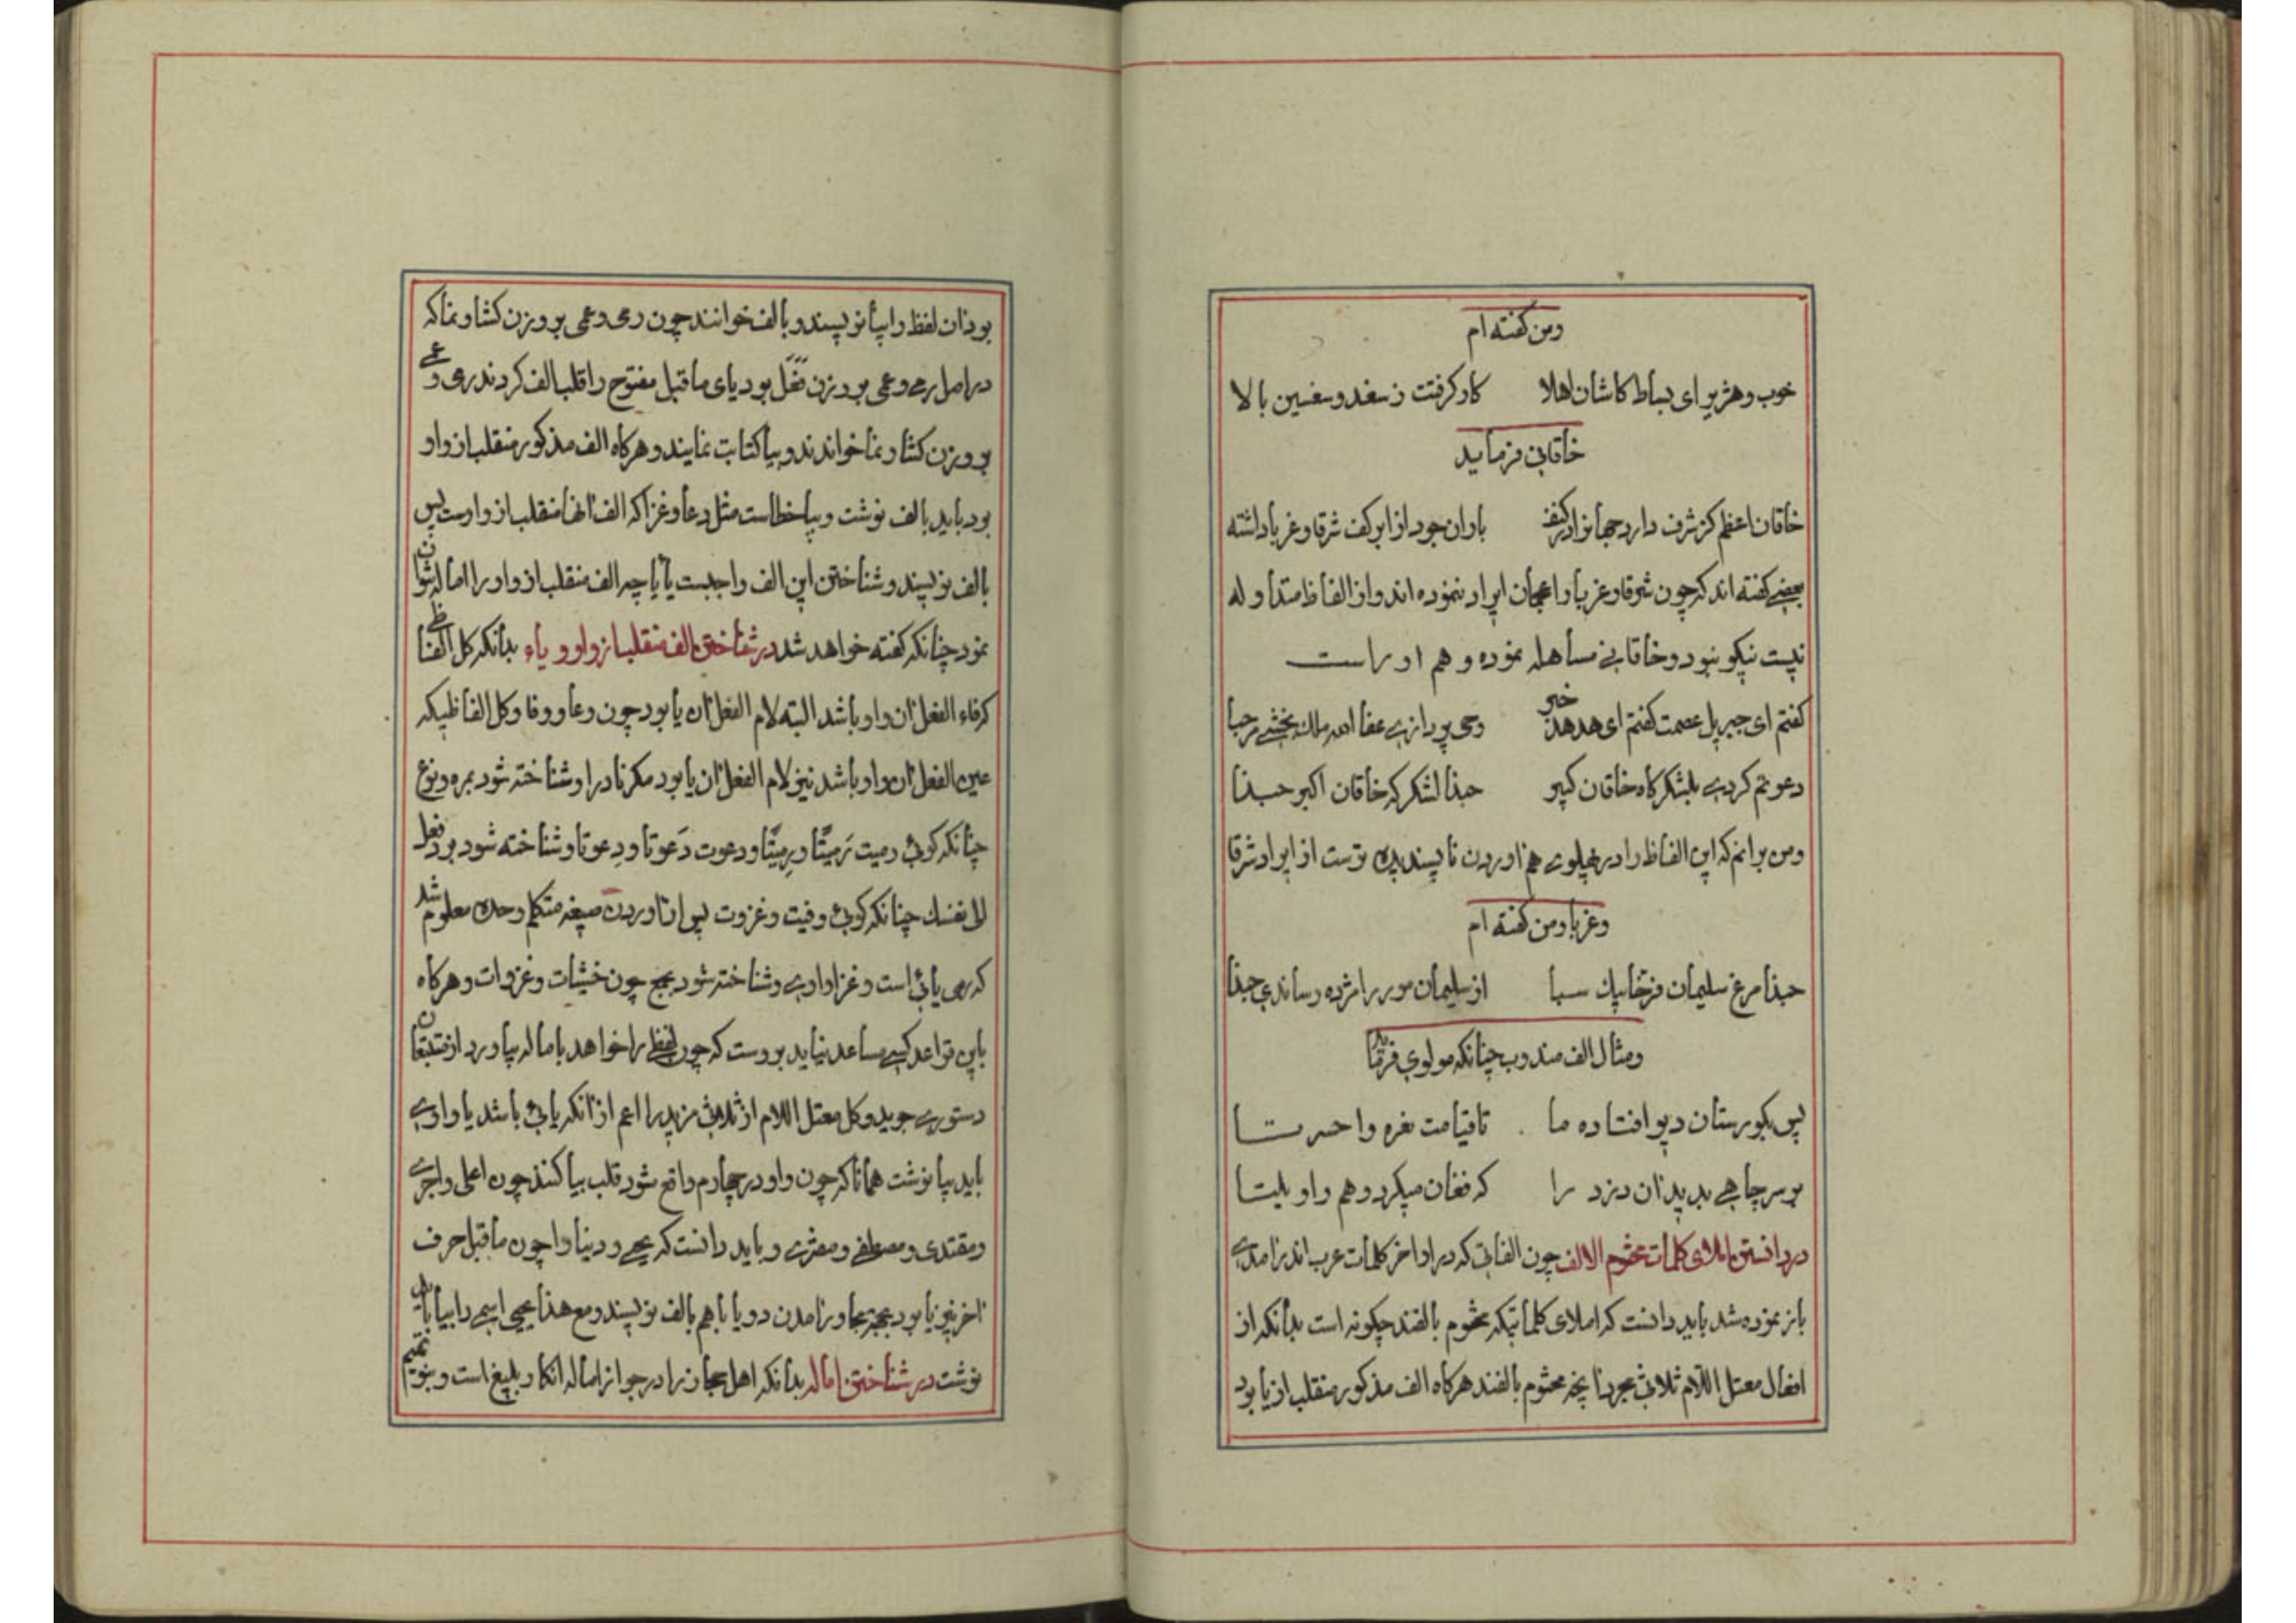 ومن گفته ام
خوب و هژیر ای بساط کاشان اهلا کار گرفتت ز سغد و سغسین بالا
خاقانی فرماید
خاقان اعظم کز شرف دارد جهانرا در کنف باران جود از ابر کف شرقا و غربا داشته
بعضی گفته اند که چون شرقا و غربا را عجمان ایراد ننموده اند و از الفاظ متداوله
نیست نیکو نبود و خاقانی مساهله نموده و هم او راست
گفتم ای جبریل عصمت گفتم ای هدهد خبر وحی پردازی عفا الله ملک بخشی مرحبا
دعوتم کردی بلشکرگاه خاقان کبیر حبذا لشکرگه خاقان اکبر حبذا
ومن برانم که این الفاظ را در پهلوی هم اوردن ناپسندیده تر است از ایراد شرقا
و غربا ومن گفته ام
حبذا مرغ سلیمان فرخا پیک سبا از سلیمان مور را مژده رساندی حبذا
ومثال الف مندوب چنانکه مولوی فرماید
پس بگورستان دیو افتاده ما تا قیامت نعره واحسرتا
بر سر چاهی بدید ان دزد را که فغان میکرد و هم واویلتا
در دانستن املای کلمات مختوم الالف چون الفاتی که در اواخر کلمات عرب اندر امدی
باز نموده شد باید دانست که املای کلماتیکه مختوم بالفند چگونه است بدانکه از
افعال معتل اللام ثلاثی مجرد انچه مختوم بالفند هرگاه الف مذکور منقلب از یا بود
بود ان لفظ را بیا نویسند و بالف خوانند چون رمی و عمی بر وزن گشا و نما که
در اصل رمی و عمی بر وزن فعل بود یای ماقبل مفتوح را قلب الف کردند رمی و عمی
بر وزن گشا و نما خواندند و بیا کتابت نمایند و هرگاه الف مذکور منقلب از واو
بود باید بالف نوشت و بیا خطاست مثل دعا و غزا که الف انها منقلب از واوست پس
بالف نویسند و شناختن این الف واجبست یا یا چه الف منقلب از واو را اماله نتوان
نمود چنانکه گفته خواهد شد در شناختن الف منقلب از واو و یاء بدانکه کل الفاظی
که فاء الفعل ان واو باشد البته لام الفعل ان یا بود چون وعا و وفا و کل الفاظیکه
عین الفعل ان واو باشد نیز لام الفعل ان یا بود مگر نادرا و شناخته شود بمره و نوع
چنانکه گوئی رمیت رَمیتًا و رِمیتًا و دعوت دَعوتا و دِعوتا و شناخته شود برد فعل
الی نفسک چنانکه گوئی وفیت و غزوت پس از اوردن صیغه متکلم وحده معلوم شد
که رمی یائی است و غزا واوی و شناخته شود بجمع چون خشیات و غزوات و هرگاه
باین قواعد کسی مساعد نیاید بروست که چون لفظی را خواهد باماله بیاورد از متتبعان
دستوری جوید و کل معتل اللام از ثلاثی مزید را اعم از انکه یائی باشد یا واوی
باید بیا نوشت همانا که چون واو در چهارم واقع شود قلب بیا کنند چون اعلی و اجری
و مقتدی و مصطفی و مفتری و باید دانست که یحیی و دنیا را چون ماقبل حرف
اخر نیز یا بود بجهة مجاور نامدن دو یا با هم بالف نویسند و مع هذا یحیی اسمی را بیا باید
نوشت در شناختن اماله بدانکه اهل حجاز را در جواز اماله انکار بلیغ است و بنو تمیم